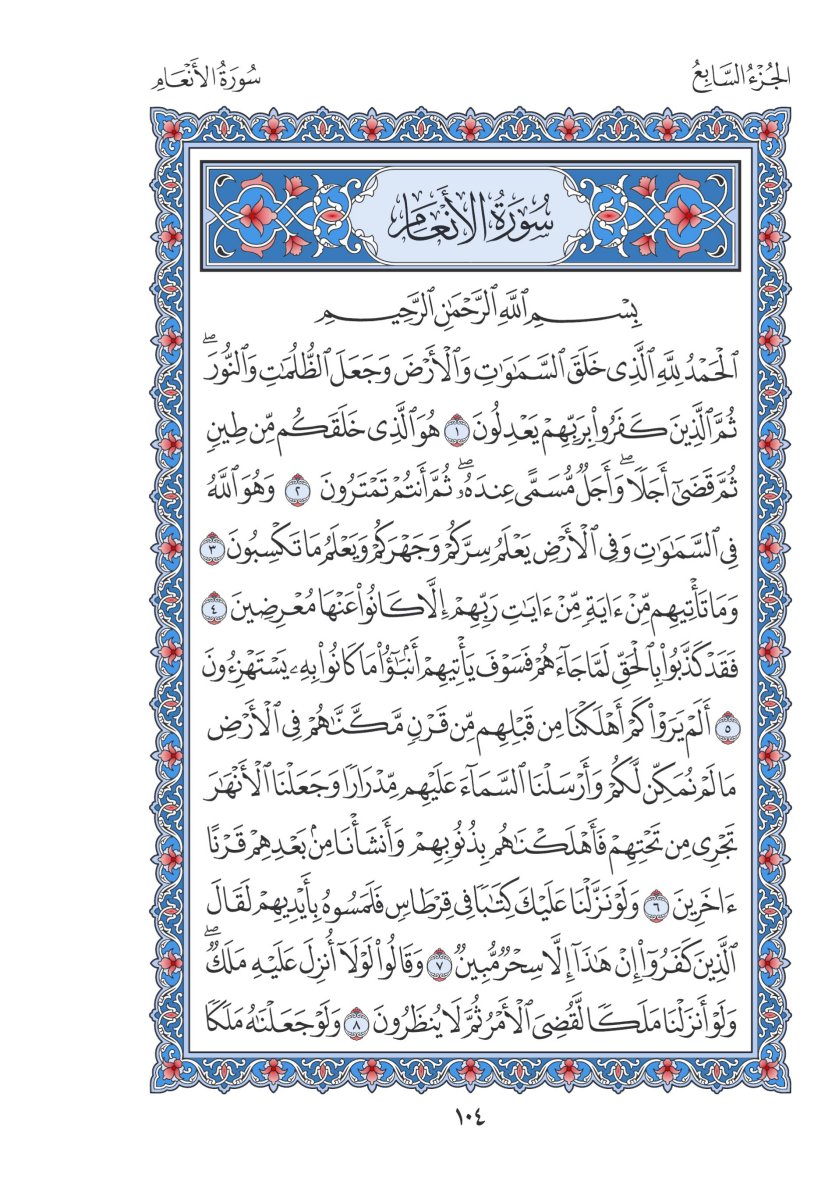 الجُزْءُ السَّابِعُ
سُورَةُ الأَنْعَامِ
سُورَةُ الأَنْعَامِ
بِسْمِ ٱللَّهِ ٱلرَّحْمَٰنِ ٱلرَّحِيمِ
ٱلْحَمْدُ لِلَّهِ ٱلَّذِى خَلَقَ ٱلسَّمَٰوَٰتِ وَٱلْأَرْضَ وَجَعَلَ ٱلظُّلُمَٰتِ وَٱلنُّورَ ۖ
ثُمَّ ٱلَّذِينَ كَفَرُوا۟ بِرَبِّهِمْ يَعْدِلُونَ ١ هُوَ ٱلَّذِى خَلَقَكُم مِّن طِينٍ
ثُمَّ قَضَىٰٓ أَجَلًا ۖ وَأَجَلٌ مُّسَمًّى عِندَهُۥ ۖ ثُمَّ أَنتُمْ تَمْتَرُونَ ٢ وَهُوَ ٱللَّهُ
فِى ٱلسَّمَٰوَٰتِ وَفِى ٱلْأَرْضِ يَعْلَمُ سِرَّكُمْ وَجَهْرَكُمْ وَيَعْلَمُ مَا تَكْسِبُونَ ٣
وَمَا تَأْتِيهِم مِّنْ ءَايَةٍ مِّنْ ءَايَٰتِ رَبِّهِمْ إِلَّا كَانُوا۟ عَنْهَا مُعْرِضِينَ ٤
فَقَدْ كَذَّبُوا۟ بِٱلْحَقِّ لَمَّا جَآءَهُمْ فَسَوْفَ يَأْتِيهِمْ أَنۢبَٰٓؤُا۟ مَا كَانُوا۟ بِهِۦ يَسْتَهْزِءُونَ
٥ أَلَمْ يَرَوْا۟ كَمْ أَهْلَكْنَا مِن قَبْلِهِم مِّن قَرْنٍ مَّكَّنَّٰهُمْ فِى ٱلْأَرْضِ
مَا لَمْ نُمَكِّن لَّكُمْ وَأَرْسَلْنَا ٱلسَّمَآءَ عَلَيْهِم مِّدْرَارًا وَجَعَلْنَا ٱلْأَنْهَٰرَ
تَجْرِى مِن تَحْتِهِمْ فَأَهْلَكْنَٰهُم بِذُنُوبِهِمْ وَأَنشَأْنَا مِنۢ بَعْدِهِمْ قَرْنًا
ءَاخَرِينَ ٦ وَلَوْ نَزَّلْنَا عَلَيْكَ كِتَٰبًا فِى قِرْطَاسٍ فَلَمَسُوهُ بِأَيْدِيهِمْ لَقَالَ
ٱلَّذِينَ كَفَرُوٓا۟ إِنْ هَٰذَآ إِلَّا سِحْرٌ مُّبِينٌ ٧ وَقَالُوا۟ لَوْلَآ أُنزِلَ عَلَيْهِ مَلَكٌ ۖ
وَلَوْ أَنزَلْنَا مَلَكًا لَّقُضِىَ ٱلْأَمْرُ ثُمَّ لَا يُنظَرُونَ ٨ وَلَوْ جَعَلْنَٰهُ مَلَكًا
١٠٤